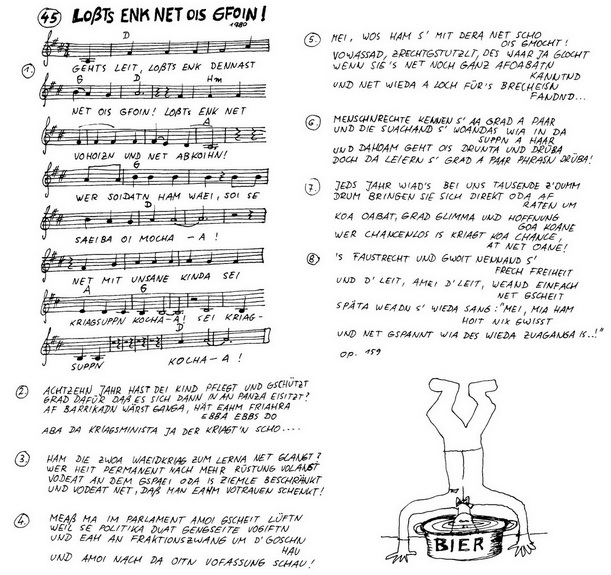 45 LOẞTS ENK NET OIS GFOIN!
1980
D
1. GEHTS LEIT, LOẞTS ENK DENNAST
G D Hm
NET OIS GFOIN! LOẞTS ENK NET
A
VOHOIZN UND NET ABKOIHN!
G
WER SOIDATN HAM WAEI, SOI SE
D
SAEIBA OI MOCHA – A!
NET MIT UNSANE KINDA SEI
A G
KRIAGSUPPN KOCHA–A! SEI KRIAG-
D
SUPPN KOCHA–A!
2. ACHTZEHN JAHR HAST DEI KIND PFLEGT UND GSCHÜTZT
GRAD DAFÜR DAẞ ES SICH DANN IN AN PANZA EISITZT?
AF BARRIKADN WÄRST GANGA, HÄT EAHM FRIAHRA
EBBA EBBS DO
ABA DA KRIAGSMINISTA JA DER KRIAGT'N SCHO....
3. HAM DIE ZWOA WAEIDKRIAG ZUM LERNA NET GLANGT?
WER HEIT PERMANENT NACH MEHR RÜSTUNG VOLANGT
VODEAT AN DEM GSPAEI ODA IS ZIEMLE BESCHRÄNKT
UND VODEAT NET, DAẞ MAN EAHM VOTRAUEN SCHENKT!
4. MEAẞ MA IM PARLAMENT AMOI GSCHEIT LÜFTN
WEIL SE POLITIKA DUAT GENGSEITE VOGIFTN
UND EAH AN FRAKTIONSZWANG UM D'GOSCHN
HAU
UND AMOI NACH DA OITN VOFASSUNG SCHAU!
5. MEI, WOS HAM S' MIT DERA NET SCHO
OIS GMOCHT!
VOWASSAD, ZRECHTGSTUTZLT, DES WAAR JA GLOCHT
WENN SIE'S NET NOCH GANZ AFOABATN
KANNTND
UND NET WIEDA A LOCH FÜR'S BRECHEISN
FANDND...
6. MENSCHNRECHTE KENNEN S' AA GRAD A PAAR
UND DIE SUACHAND S' WOANDAS WIA IN DA
SUPPN A HAAR
UND DAHOAM GEHT OIS DRUNTA UND DRÜBA
DOCH DA LEIERN S' GRAD A PAAR PHRASN DRÜBA!
7. JEDS JAHR WIAD'S BEI UNS TAUSENDE Z'DUMM
DRUM BRINGEN SIE SICH DIREKT ODA AF
RATEN UM
KOA OABAT, GRAD GLIMMA UND HOFFNUNG
GOA KOANE
WER CHANCENLOS IS KRIAGT KOA CHANCE,
AT NET OANE!
8. 'S FAUSTRECHT UND GWOIT NENNAND S'
FRECH FREIHEIT
UND D' LEIT, AMEI D' LEIT, WEAND EINFACH
NET GSCHEIT
SPÄTA WEADN S' WIEDA SANG: "MEI, MIA HAM
HOIT NIX GWISST
UND NET GSPANNT WIA DES WIEDA ZUAGANGA IS..!"
OP. 159
BIER